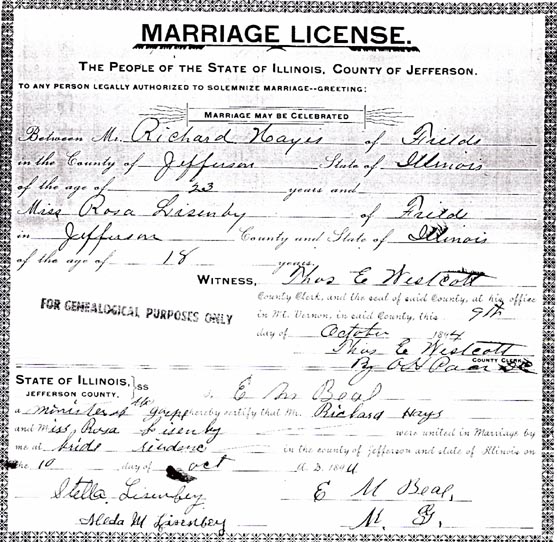 MARRIAGE LICENSE.
THE PEOPLE OF THE STATE OF ILLINOIS, COUNTY OF JEFFERSON.
TO ANY PERSON LEGALLY AUTHORIZED TO SOLEMNIZE MARRIAGE--GREETING:
MARRIAGE MAY BE CELEBRATED
Between Mr. Richard Hayes of Fields
in the County of Jefferson State of Illinois
of the age of 23 years and
Miss Rosa Lisenby of Fields
in Jefferson County and State of Illinois
of the age of 18 years.
WITNESS, Thos E Westcott
County Clerk, and the seal of said County, at his office
in Mt. Vernon, in said County, this 9th
FOR GENEALOGICAL PURPOSES ONLY
day of October 1894
Thos E Westcott
COUNTY CLERK
By
STATE OF ILLINOIS, } ss
JEFFERSON COUNTY.
I, E M Beal
a minister of gospel hereby certify that Mr. Richard Hays
and Miss Rosa Lisenby were united in Marriage by
me at bride residenc in the county of jefferson and state of Illinois on
the 10 day of oct A. D. 1894
Stella Lisenbey E M Beal,
Aleda M Lisenbey M. G.